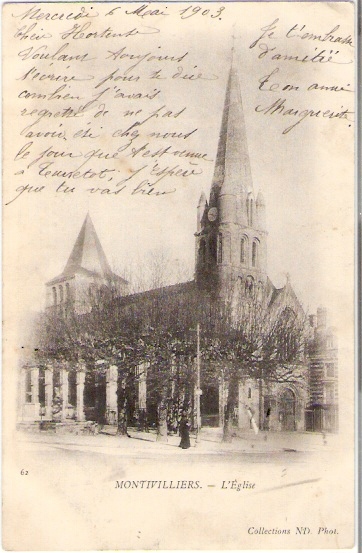 Mercredi 6 Mai 1903.
Chère Hortense
Voulant toujours
t'écrire pour te dire
combien j'avais
regretté de ne pas
avoir été chez nous
le jour que tu est venue
à j'espère
que tu vas bien
Je t'embrasse
d'amitié
Ton amie
Marguerite.
62
MONTIVILLIERS. — L'Église
Collections ND. Phot.